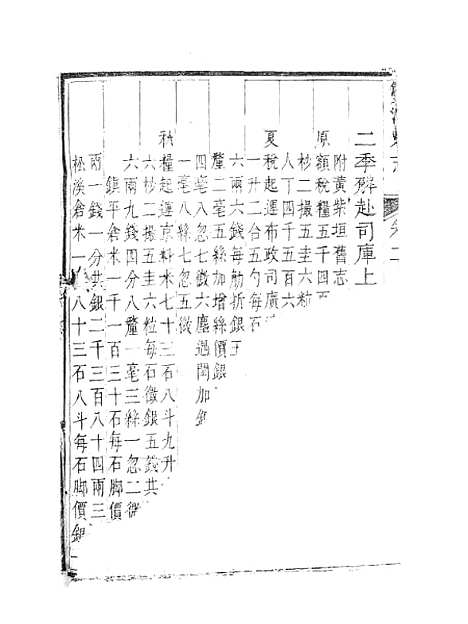 二季解赴司庫上
附黃柴垣舊志
原額稅糧五千四
杪二撮五圭六粒
人丁四千五百六
夏稅起運布政司廣
一升二合五勺每石
六兩六錢每觔折銀五
釐二毫五絲加增絲價銀
四毫入忽七微六塵遇閏加銀
一毫八絲七忽五微
秋糧起運京料米七十三石八斗九升
六杪二撮五圭六粒每石徵銀五錢共
六兩九錢四分八釐一毫三絲一忽二微
鎮平倉米一千一百三十石每石脚價
兩一錢一分共銀二千三百八十四兩三
松溪倉米一 八十三石八斗每石脚價銀一